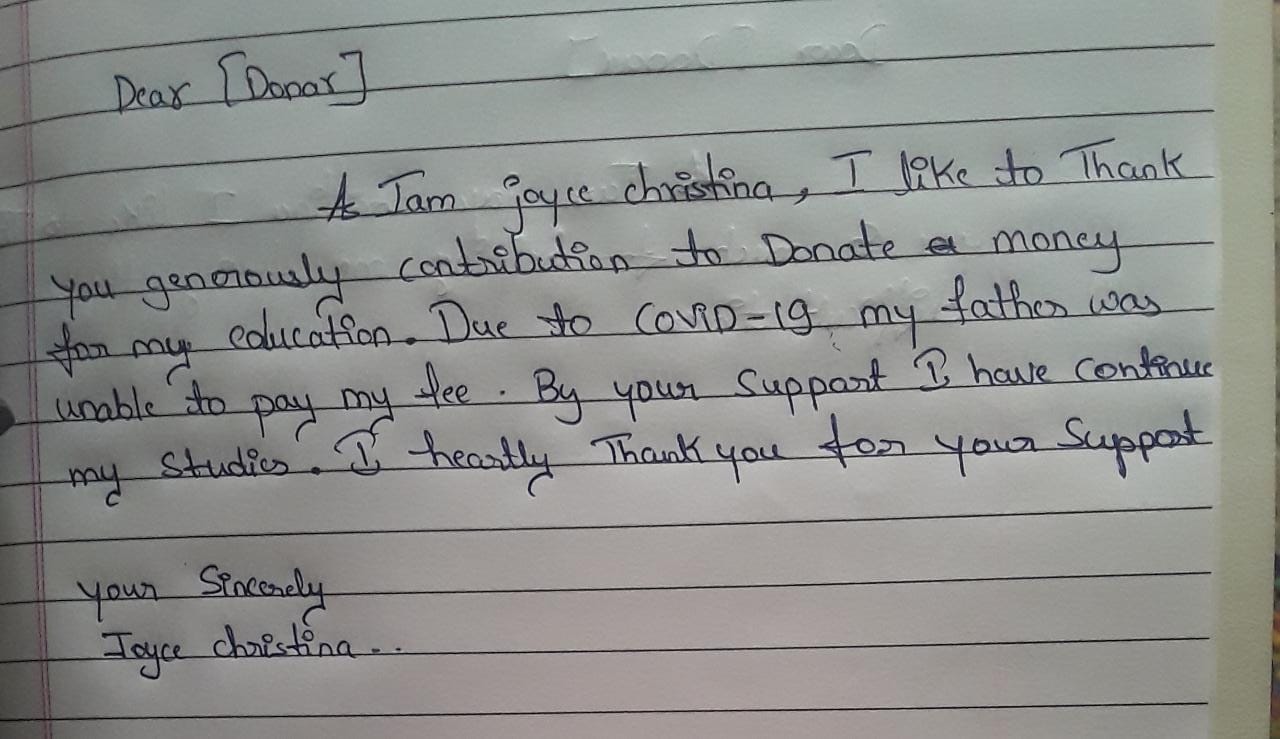 Dear [Donar]
As I am joyce christina, I like to Thank
you generously contribution to Donate a money
for my education. Due to COVID-19 my father was
unable to pay my fee. By your Support I have continue
my studies. I heartly Thank you for your Support
your Sincerely
Joyce christina...